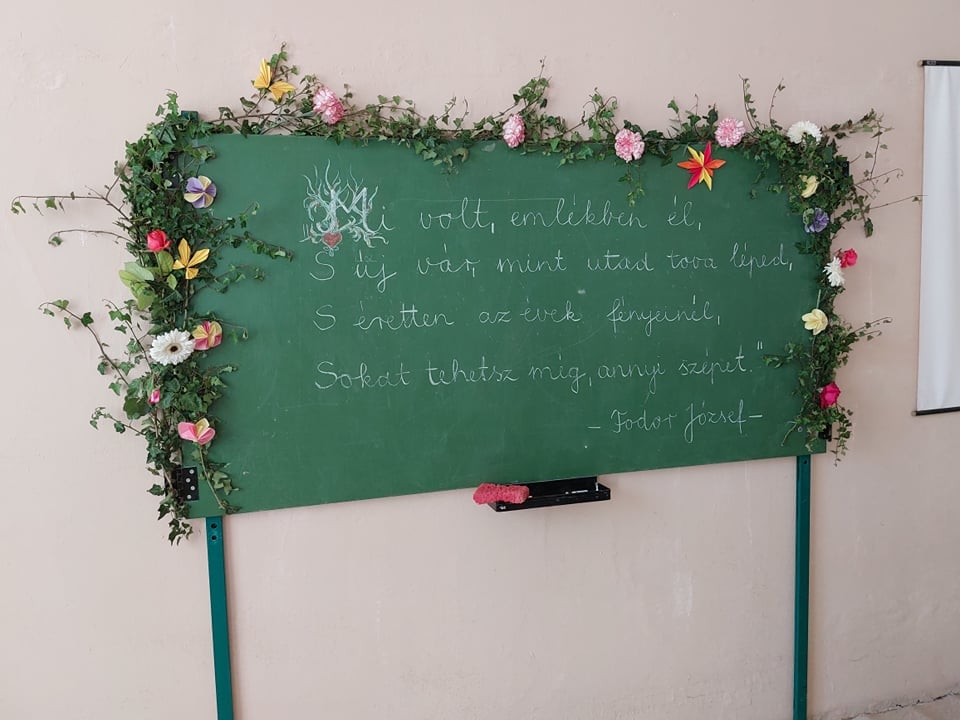 „Mi volt, emlékben él,
S új vár, mint utad tova léped,
S éretten az évek fényeinél,
Sokat tehetsz még, annyi szépet."
- Fodor József -